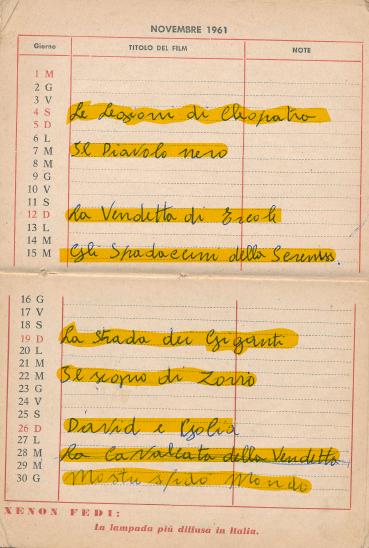 NOVEMBRE 1961
Giorno TITOLO DEL FILM NOTE
1 M
2 G
3 V
4 S Le Legioni di Cleopatra
5 D
6 L
7 M Il Diavolo nero
8 M
9 G
10 V
11 S
12 D La Vendetta di Ercole
13 L
14 M
15 M Gli Spadaccini della Sereniss.
16 G
17 V
18 S
19 D La Strada dei Giganti
20 L
21 M
22 M Il segno di Zorro
23 G
24 V
25 S
26 D David e Golia
27 L
28 M La Cavalcata della Vendetta
29 M
30 G Mondo
XENON FEDI:
La lampada più diffusa in Italia.